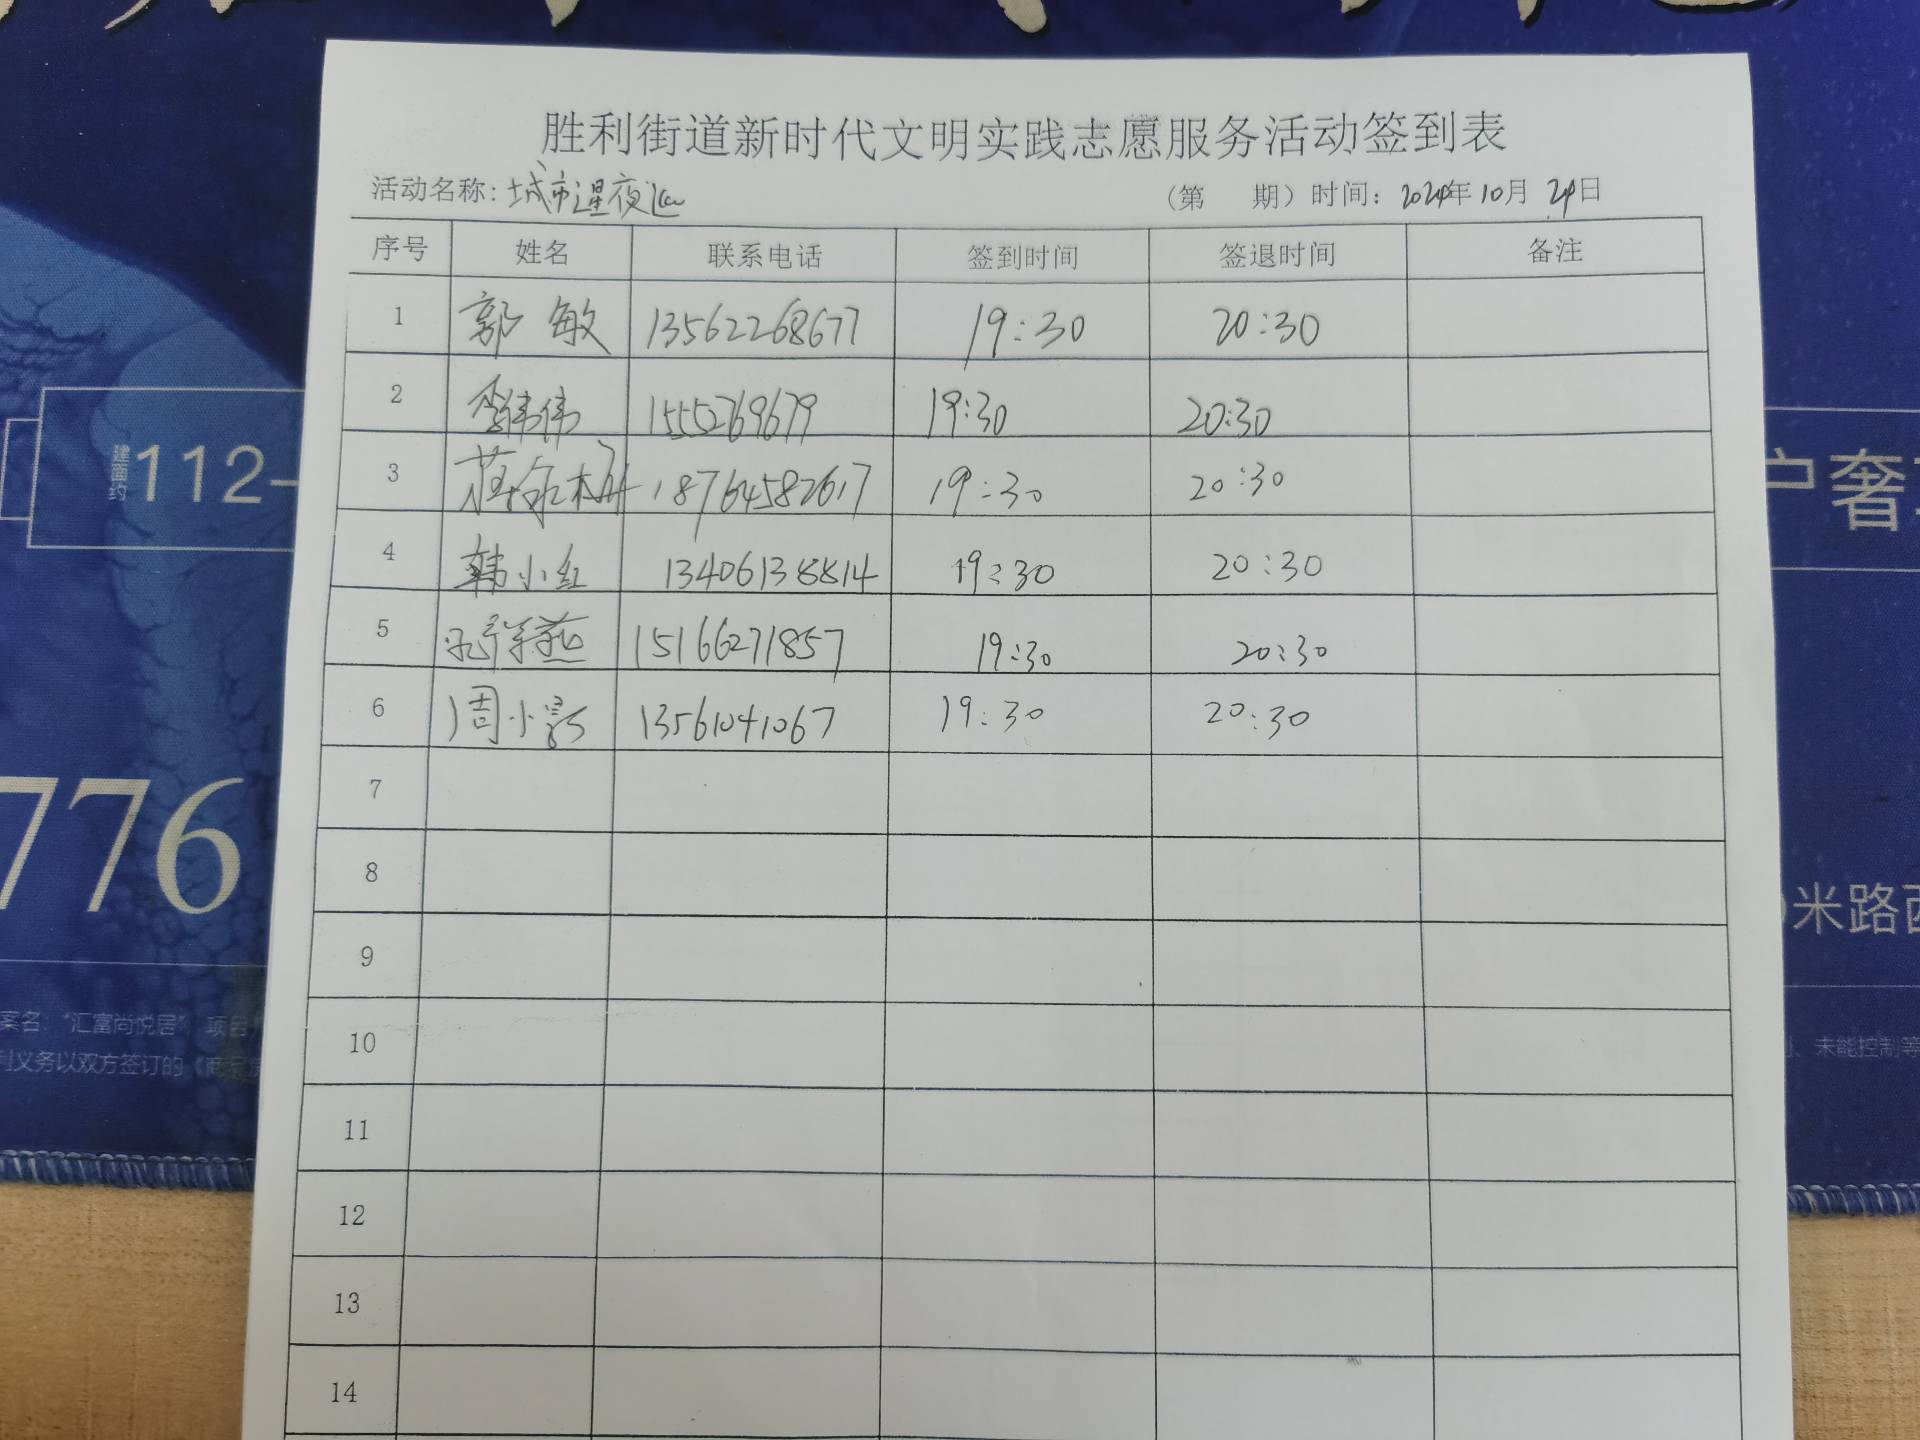 胜利街道新时代文明实践志愿服务活动签到表
活动名称：城市暹夜巡 （第 期）时间：2024年10月24日
序号 姓名 联系电话 签到时间 签退时间 备注
1 郭敏 13562268677 19:30 20:30
2 李伟伟 1555269679 19:30 20:30
3 18764582617 19:30 20:30
4 韩小红 13406138814 19:30 20:30
5 15166271857 19:30 20:30
6 周小影 13561041067 19:30 20:30
7
8
9
10
11
12
13
14
建面约112-
户奢
776
米路西
案名：“汇富尚悦居” 项目
利义务以双方签订的《商品房
、未能控制等